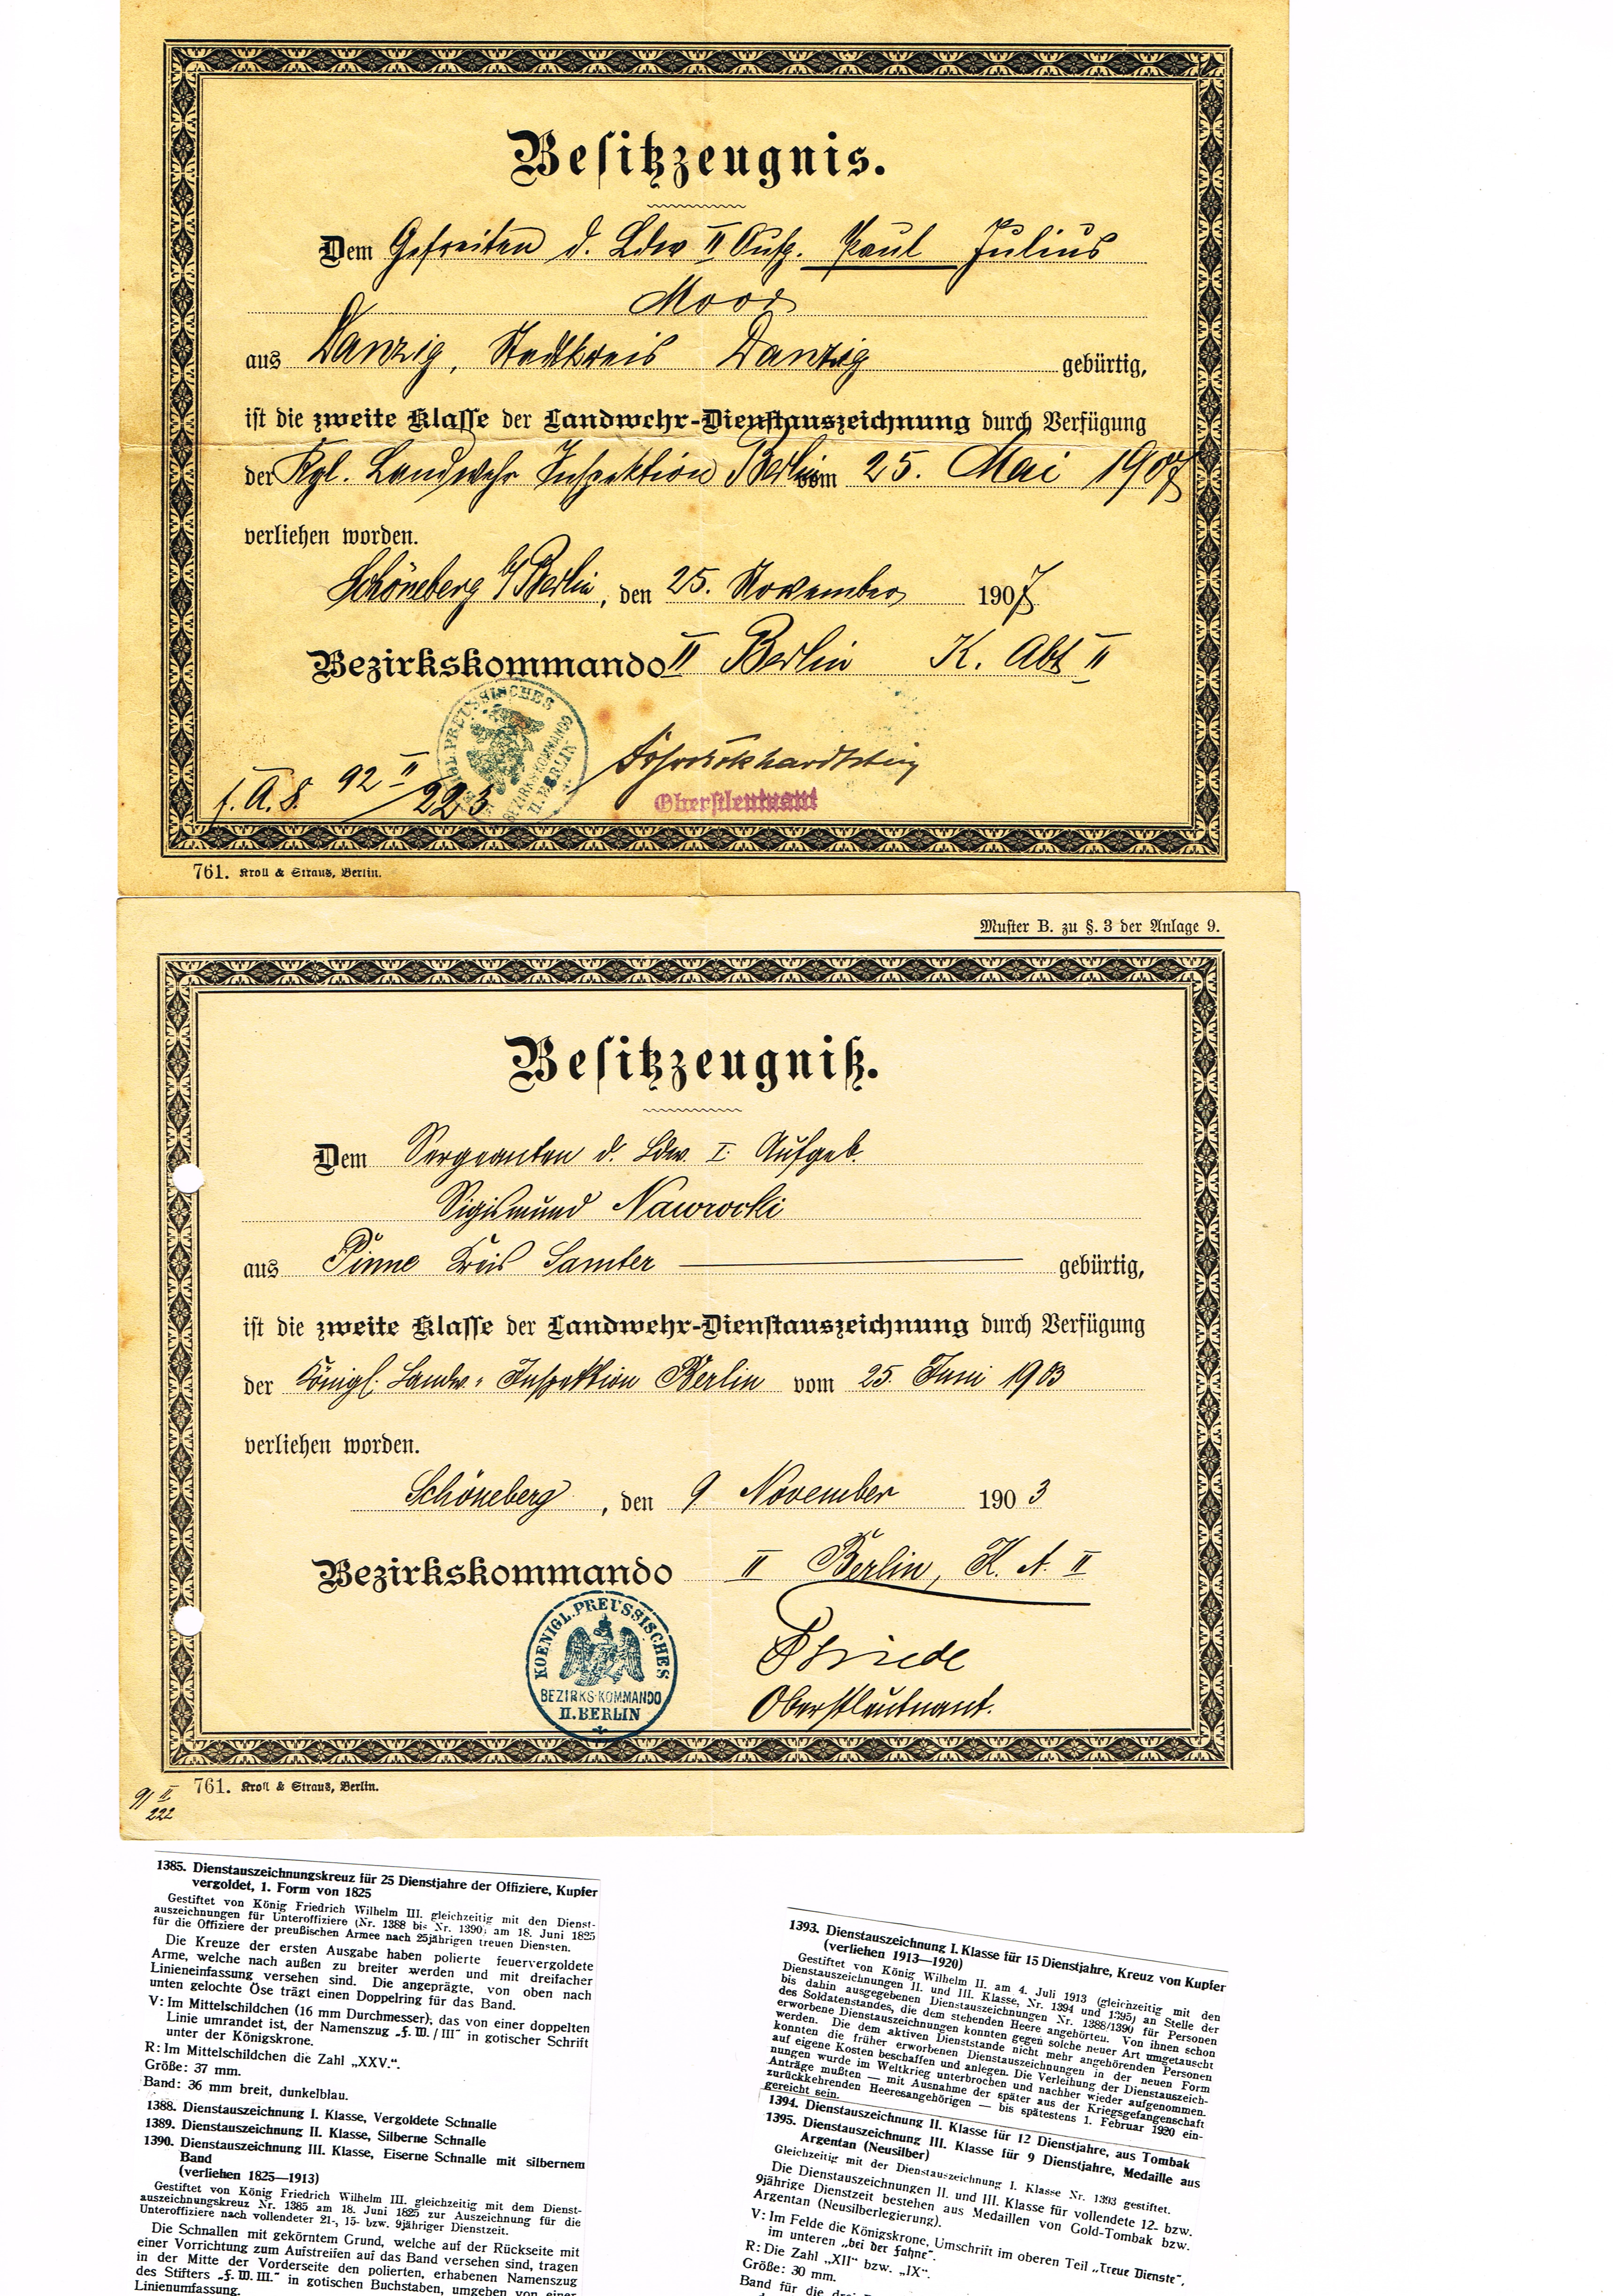 Besitzzeugnis.
Dem Gefreiten d. Ldw II Aufg. Paul Julius
Moor
aus Danzig, Stadtkreis Danzig gebürtig,
ist die zweite Klasse der Landwehr-Dienstauszeichnung durch Verfügung
der Kgl. Landwehr Inspektion Berlin vom 25. Mai 1907
verliehen worden.
Schöneberg b/Berlin, den 25. November 1907
Bezirkskommando II Berlin K. Abt II
KGL. PREUSSISCHES
BEZIRKS-KOMMANDO
II. BERLIN
92 II/223
Oberstleutnant
761. Kroll & Straus, Berlin.
Muster B. zu §. 3 der Anlage 9.
Besitzzeugniß.
Dem Sergeanten d. Ldw. I. Aufgeb.
Sigismund Nawrocki
aus Pinne Kreis Samter gebürtig,
ist die zweite Klasse der Landwehr-Dienstauszeichnung durch Verfügung
der Königl. Landw. Inspektion Berlin vom 25. Juni 1903
verliehen worden.
Schöneberg, den 9 November 1903
Bezirkskommando II Berlin, K. A. II
KOENIGL. PREUSSISCHES
BEZIRKS-KOMMANDO
II. BERLIN
Oberstleutnant.
761. Kroll & Straus, Berlin.
91 II
222
1385. Dienstauszeichnungskreuz für 25 Dienstjahre der Offiziere, Kupfer
vergoldet, 1. Form von 1825
Gestiftet von König Friedrich Wilhelm III. gleichzeitig mit den Dienst-
auszeichnungen für Unteroffiziere (Nr. 1388 bis Nr. 1390) am 18. Juni 1825
für die Offiziere der preußischen Armee nach 25jährigen treuen Diensten.
Die Kreuze der ersten Ausgabe haben polierte feuervergoldete
Arme, welche nach außen zu breiter werden und mit dreifacher
Linieneinfassung versehen sind. Die angeprägte, von oben nach
unten gelochte Öse trägt einen Doppelring für das Band.
V: Im Mittelschildchen (16 mm Durchmesser), das von einer doppelten
Linie umrandet ist, der Namenszug „F. W. / III“ in gotischer Schrift
unter der Königskrone.
R: Im Mittelschildchen die Zahl „XXV.“.
Größe: 37 mm.
Band: 36 mm breit, dunkelblau.
1388. Dienstauszeichnung I. Klasse, Vergoldete Schnalle
1389. Dienstauszeichnung II. Klasse, Silberne Schnalle
1390. Dienstauszeichnung III. Klasse, Eiserne Schnalle mit silbernem
Band
(verliehen 1825—1913)
Gestiftet von König Friedrich Wilhelm III. gleichzeitig mit dem Dienst-
auszeichnungskreuz Nr. 1385 am 18. Juni 1825 zur Auszeichnung für die
Unteroffiziere nach vollendeter 21-, 15- bzw. 9jähriger Dienstzeit.
Die Schnallen mit gekörntem Grund, welche auf der Rückseite mit
einer Vorrichtung zum Aufstreifen auf das Band versehen sind, tragen
in der Mitte der Vorderseite den polierten, erhabenen Namenszug
des Stifters „F. W. III.“ in gotischen Buchstaben, umgeben von einer
Linienumfassung.
1393. Dienstauszeichnung I. Klasse für 15 Dienstjahre, Kreuz von Kupfer
(verliehen 1913—1920)
Gestiftet von König Wilhelm II. am 4. Juli 1913 (gleichzeitig mit den
Dienstauszeichnungen II. und III. Klasse, Nr. 1394 und 1395) an Stelle der
bis dahin ausgegebenen Dienstauszeichnungen Nr. 1388/1390 für Personen
des Soldatenstandes, die dem stehenden Heere angehörten. Von ihnen schon
erworbene Dienstauszeichnungen konnten gegen solche neuer Art umgetauscht
werden. Die dem aktiven Dienststande nicht mehr angehörenden Personen
konnten die früher erworbenen Dienstauszeichnungen in der neuen Form
auf eigene Kosten beschaffen und anlegen. Die Verleihung der Dienstauszeich-
nungen wurde im Weltkrieg unterbrochen und nachher wieder aufgenommen.
Anträge mußten — mit Ausnahme der später aus der Kriegsgefangenschaft
zurückkehrenden Heeresangehörigen — bis spätestens 1. Februar 1920 ein-
gereicht sein.
1394. Dienstauszeichnung II. Klasse für 12 Dienstjahre, aus Tombak
1395. Dienstauszeichnung III. Klasse für 9 Dienstjahre, Medaille aus
Argentan (Neusilber)
Gleichzeitig mit der Dienstauszeichnung I. Klasse Nr. 1393 gestiftet.
Die Dienstauszeichnungen II. und III. Klasse für vollendete 12- bzw.
9jährige Dienstzeit bestehen aus Medaillen von Gold-Tombak bzw.
Argentan (Neusilberlegierung).
V: Im Felde die Königskrone, Umschrift im oberen Teil „Treue Dienste“,
im unteren „bei der Fahne“.
R: Die Zahl „XII“ bzw. „IX“.
Größe: 30 mm.
Band für die